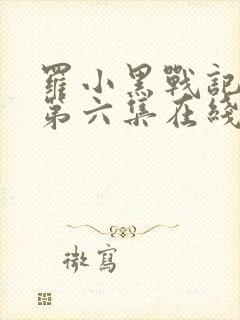 羅小黑戰記
第六集在綫
微寫